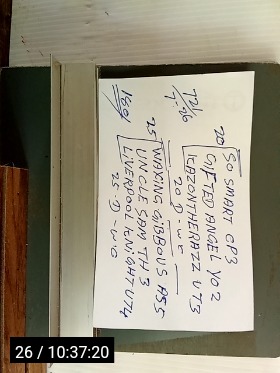 72/26
20 SO SMART CP3
GIFTED ANGEL YO2
KAZONTHERAZZ VT3
20-D-w e
25 WAXING GIBBOUS PS5
UNCLE SAM TH3
LIVERPOOL KNIGHT UT4
25-D-w e
26 / 10:37:20